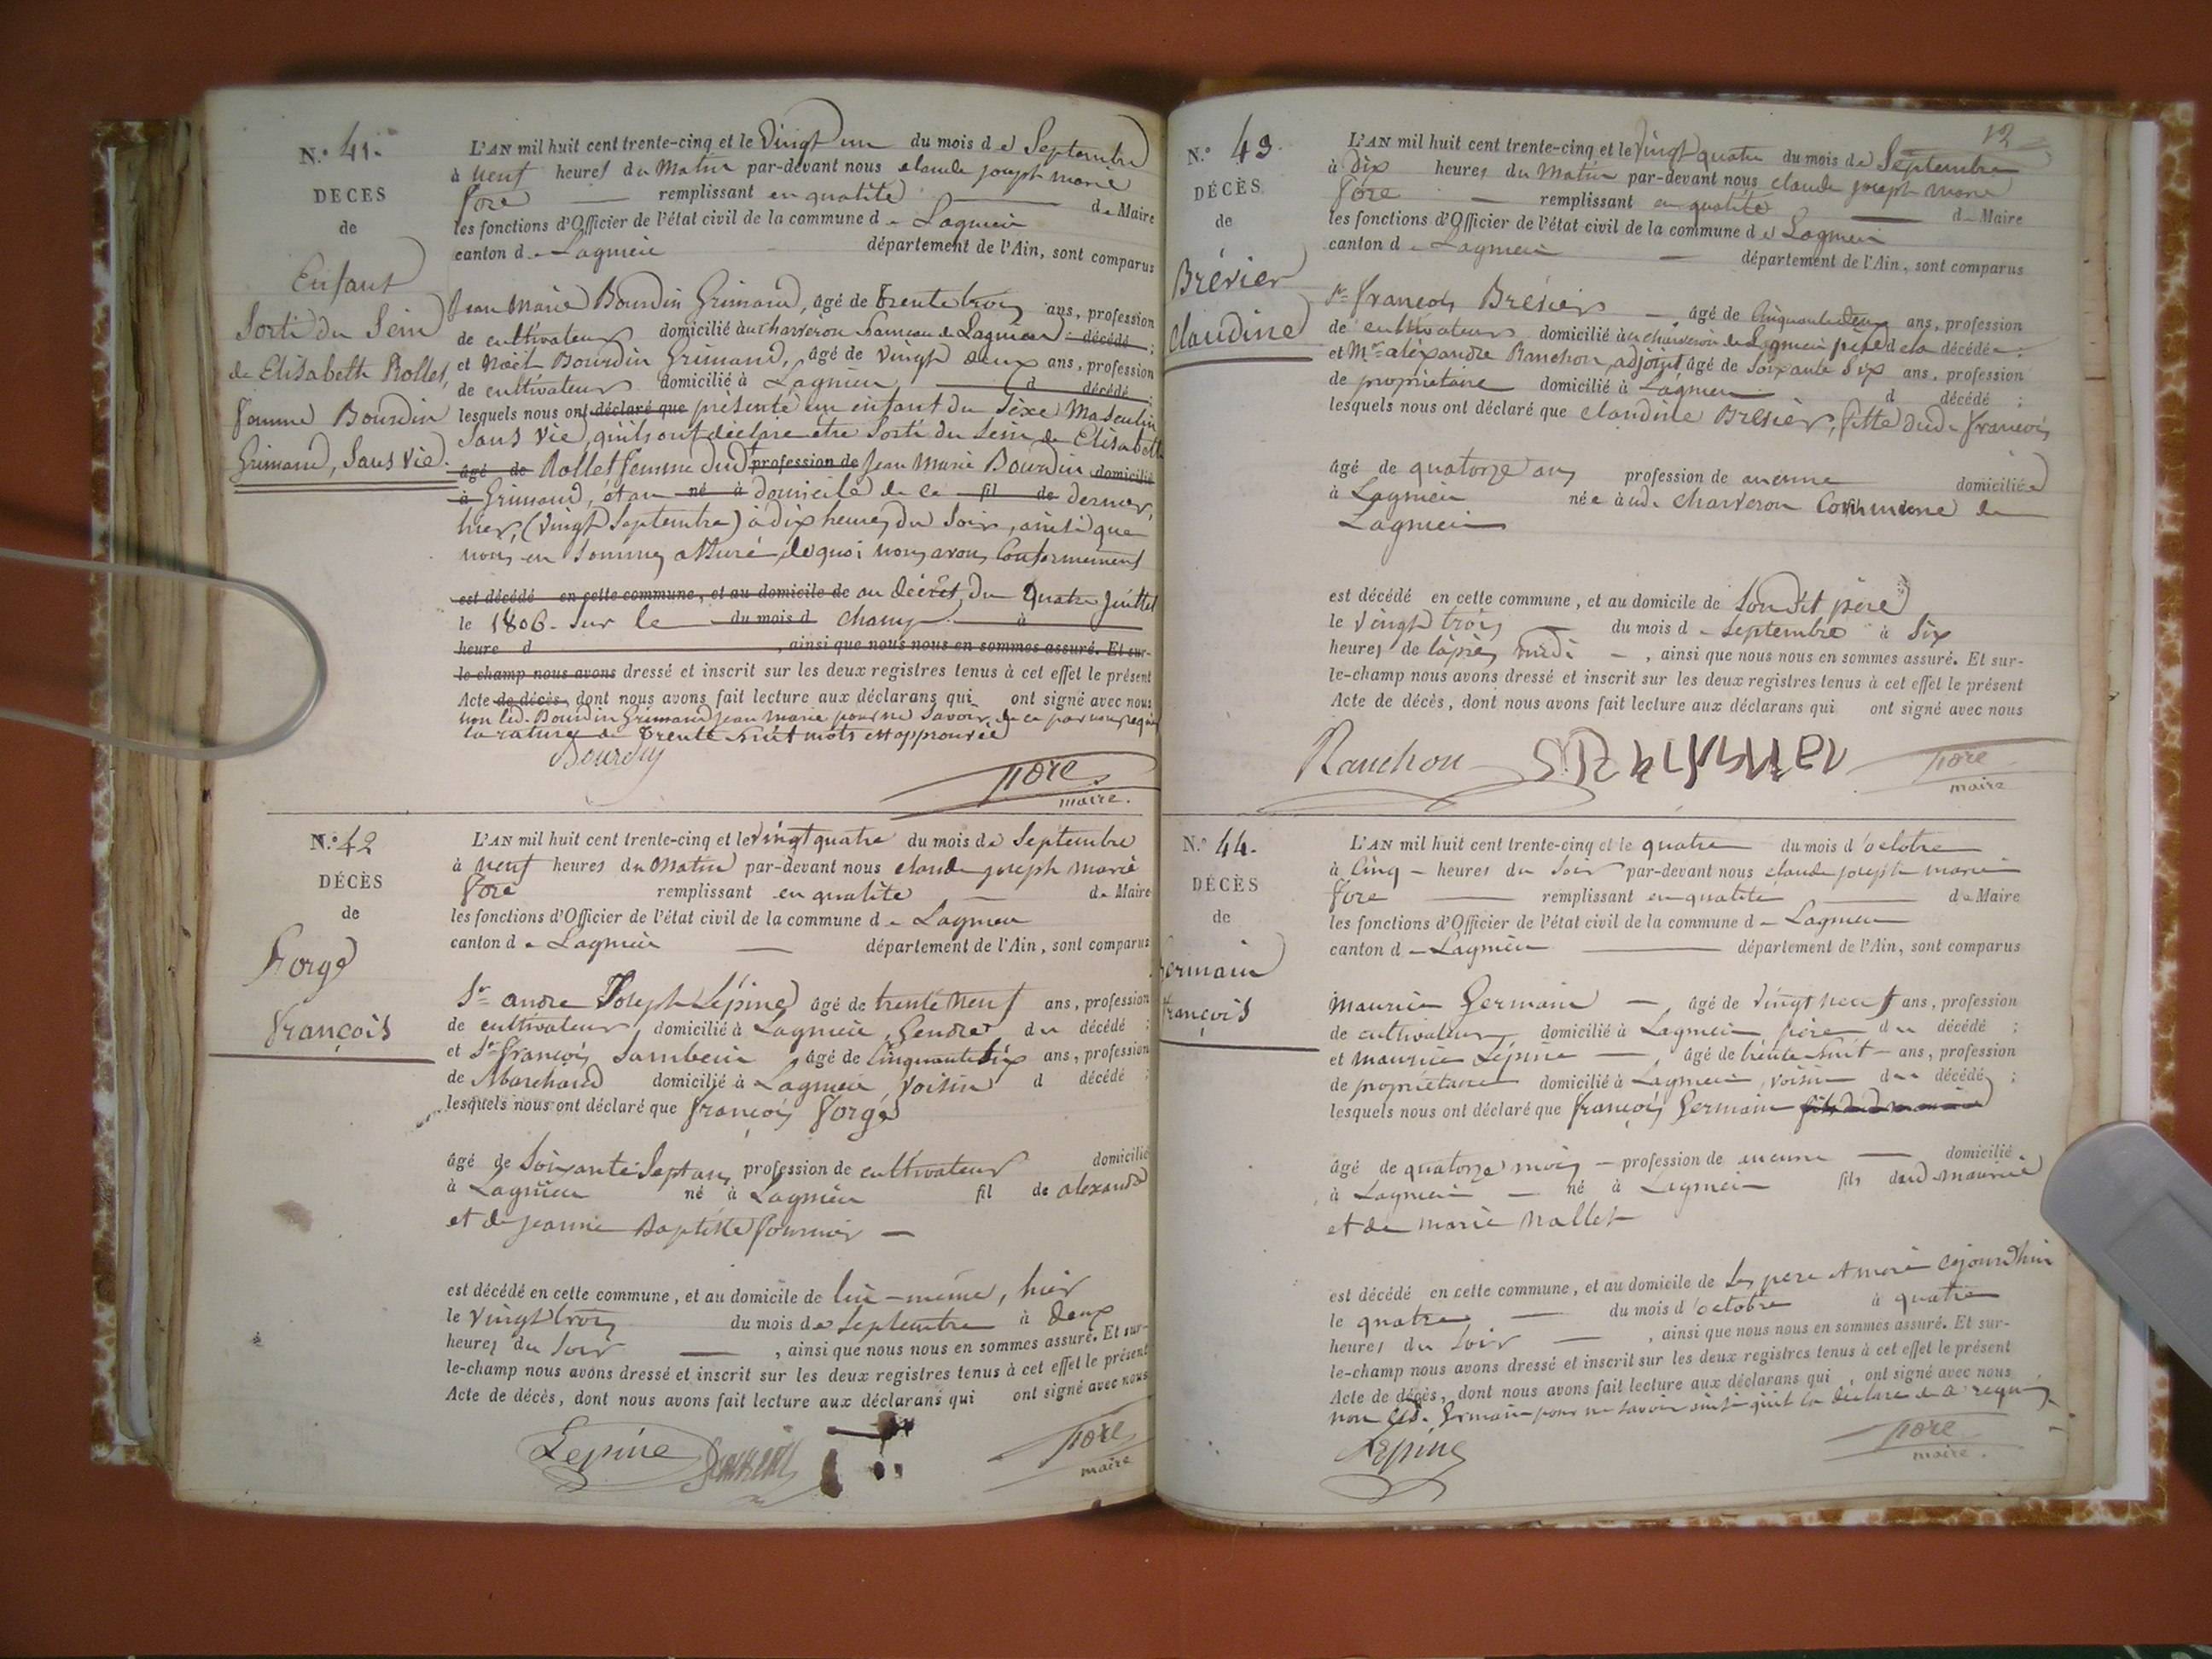 N.° 41.
DECES
de
Enfant
Sorti du Sein
de Elisabeth Rollet,
femme Bourdin
Grimand, Sans vie.
L'AN mil huit cent trente-cinq et le Vingt un du mois de Septembre
à neuf heures du Matin par-devant nous claude joseph marie
Fore — remplissant en qualité — de Maire
les fonctions d'Officier de l'état civil de la commune de Lagnieu
canton de Lagnieu département de l'Ain, sont comparus
Jean Marie Bourdin Grimand, âgé de trente trois ans, profession
de cultivateur domicilié au charveron hameau de Lagnieu décédé ;
et Noël Bourdin Grimand, âgé de vingt deux ans, profession
de cultivateur domicilié à Lagnieu d décédé ;
lesquels nous ont déclaré que présenté un enfant du Sèxe Masculin
Sans vie, qu'ils ont déclaré etre Sorti du Sein de Elisabeth
âgé de Rollet femme dud profession de Jean Marie Bourdin domicilié
à Grimand, et au né à domicile de ce fil de dernier,
hier, (vingt Septembre) à dix heures du Soir, ainsi que
nous en Sommes assuré, de quoi nous avons Conformément
est décédé en cette commune, et au domicile de au décret du quatre juillet
le 1806. Sur le du mois d champ. à
heure d , ainsi que nous nous en sommes assuré. Et sur-
le-champ nous avons dressé et inscrit sur les deux registres tenus à cet effet le présent
Acte de décès, dont nous avons fait lecture aux déclarans qui ont signé avec nous
non led. Bourdin Grimand jean marie pour ne Savoir, de ce par nous requis
la rature de trente huit mots est approuvée
Bourdin
Fore
maire.
N.° 42
DÉCÈS
de
Forge
François
L'AN mil huit cent trente-cinq et le vingt quatre du mois de Septembre
à neuf heures du Matin par-devant nous claude joseph marie
Fore remplissant en qualité — de Maire
les fonctions d'Officier de l'état civil de la commune de Lagnieu
canton de Lagnieu — département de l'Ain, sont comparus
Sr andre Joseph Lépine âgé de trente neuf ans, profession
de cultivateur, domicilié à Lagnieu, Gendre du décédé ;
et Sr françois Sambein, âgé de Cinquante six ans, profession
de Marchand domicilié à Lagnieu, voisin d décédé ;
lesquels nous ont déclaré que françois Forge
âgé de Soixante Sept ans profession de cultivateur domicilié
à Lagnieu né à Lagnieu fil de alexandre
et de jeanne Baptiste fournier —
est décédé en cette commune, et au domicile de lui-même, hier
le Vingt trois du mois de Septembre à deux
heures du Soir — , ainsi que nous nous en sommes assuré. Et sur-
le-champ nous avons dressé et inscrit sur les deux registres tenus à cet effet le présent
Acte de décès, dont nous avons fait lecture aux déclarans qui ont signé avec nous
Lepine
Fore
maire
12
N.° 43.
DÉCÈS
de
Brévier
Claudine
L'AN mil huit cent trente-cinq et le Vingt quatre du mois de Septembre
à dix heures du Matin par-devant nous claude joseph marie
Fore — remplissant en qualité — de Maire
les fonctions d'Officier de l'état civil de la commune de Lagnieu
canton de Lagnieu — département de l'Ain, sont comparus
Sr françois Brévier — âgé de Cinquante deux ans, profession
de cultivateur domicilié au charveron de Lagnieu père de la décédée ;
et Mr. aléxandre Ranchon, adjoint âgé de Soixante Six ans, profession
de propriétaire domicilié à Lagnieu d décédé ;
lesquels nous ont déclaré que claudine Brévier, fille dud. François
âgé de quatorze ans profession de aucune domiciliée
à Lagnieu née à aud. Charveron Commune de
Lagnieu
est décédé en cette commune, et au domicile de Son dit père
le Vingt trois du mois de Septembre à Six
heures de l'après midi — , ainsi que nous nous en sommes assuré. Et sur-
le-champ nous avons dressé et inscrit sur les deux registres tenus à cet effet le présent
Acte de décès, dont nous avons fait lecture aux déclarans qui ont signé avec nous
Ranchon
Fore
maire
N.° 44.
DÉCÈS
de
Germain
François
L'AN mil huit cent trente-cinq et le quatre du mois d'octobre
à Cinq — heures du Soir par-devant nous claude joseph marie
Fore — remplissant en qualité — de Maire
les fonctions d'Officier de l'état civil de la commune de Lagnieu
canton de Lagnieu — département de l'Ain, sont comparus
Maurice Germain —, âgé de Vingt neuf ans, profession
de cultivateur, domicilié à Lagnieu, père du décédé ;
et maurice Lépine —, âgé de trente huit — ans, profession
de propriétaire domicilié à Lagnieu, voisin du décédé ;
lesquels nous ont déclaré que françois Germain fils dud. maurice
âgé de quatorze mois — profession de aucune — domicilié
à Lagnieu — né à Lagnieu — fils dud. maurice
et de marie nallet
est décédé en cette commune, et au domicile de Ses pere et mere cejourd'hui
le quatre — du mois d'octobre à quatre
heures du Soir — , ainsi que nous nous en sommes assuré. Et sur-
le-champ nous avons dressé et inscrit sur les deux registres tenus à cet effet le présent
Acte de décès, dont nous avons fait lecture aux déclarans qui ont signé avec nous
non led. Germain pour ne savoir ainsi qu'il la déclaré de ce requis
Lepine
Fore
maire.